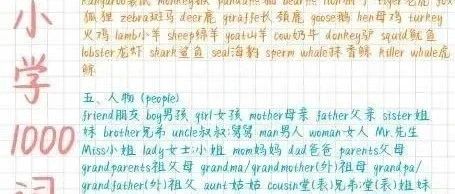 小学1000词
kangaroo袋鼠 monkey猴 panda熊猫 bear熊 lion狮子 tiger老虎 fox
狐狸 zebra斑马 deer鹿 giraffe长颈鹿 goose鹅 hen母鸡 turkey
火鸡 lamb小羊 sheep绵羊 goat山羊 cow奶牛 donkey驴 squid鱿鱼
lobster龙虾 shark鲨鱼 seal海豹 sperm whale抹香鲸 killer whale虎
鲸
五、人物 (people)
friend朋友 boy男孩 girl女孩 mother母亲 father父亲 sister姐
妹 brother兄弟 uncle叔叔;舅舅 man男人 woman女人 Mr.先生
Miss小姐 lady女士;小姐 mom妈妈 dad爸爸 parents父母
grandparents祖父母 grandma/grandmother(外)祖母 grandpa/
grandfather(外)祖父 aunt姑姑 cousin堂(表)兄弟;堂(表)姐妹